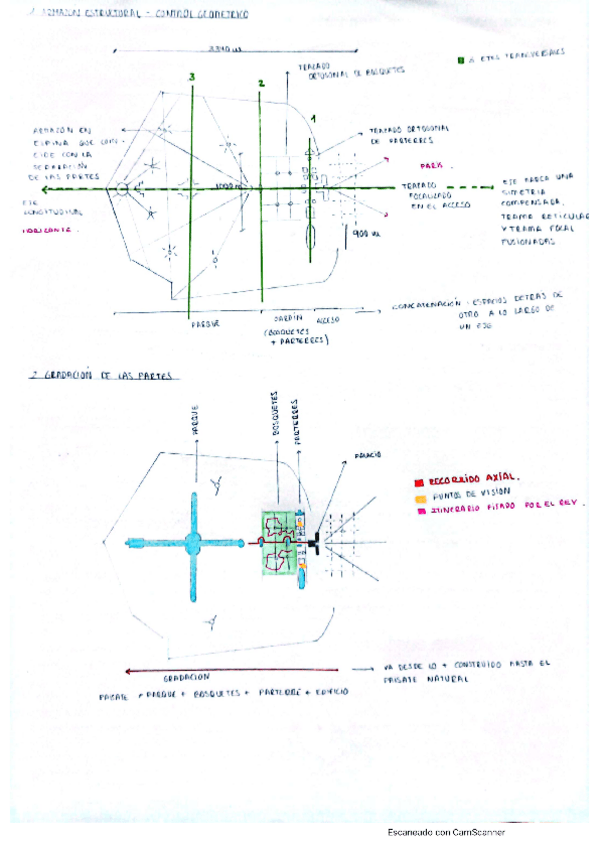 1. ARMAZÓN ESTRUCTURAL - CONTROL GEOMÉTRICO
TRAZADO
ORTOGONAL DE BOSQUETES
EJES TRANSVERSALES
3
2
1
ARMAZÓN EN
ESPINA QUE COIN-
CIDE CON LA
SEPARACIÓN
DE LAS PARTES
TRAZADO ORTOGONAL
DE PARTERRES
PARIS.
EJE
LONGITUDINAL
HORIZONTE.
TRAZADO
FOCALIZADO
EN EL ACCESO
EJE MARCA UNA
SIMETRIA
COMPENSADA.
TRAMA RETICULAR
Y TRAMA FOCAL
FUSIONADAS
900 m
PARQUE
JARDÍN
(BOSQUETES
+ PARTERRES)
ACCESO
CONCATENACIÓN: ESPACIOS DETRAS DE
OTRO A LO LARGO DE
UN EJE
2. GRADACIÓN DE LAS PARTES
PARQUE
BOSQUETES
PARTERRES
PALACIO
RECORRIDO AXIAL.
PUNTOS DE VISION
ITINERARIO FIJADO POR EL REY.
GRADACION
VA DESDE LO + CONSTRUIDO HASTA EL
PAISAJE NATURAL
PAISAJE + PARQUE + BOSQUETES + PARTERRE + EDIFICIO
Escaneado con CamScanner